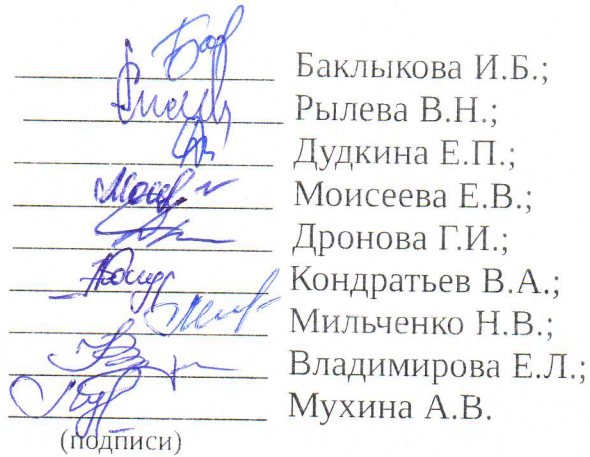 Баклыкова И.Б.;
Рылева В.Н.;
Дудкина Е.П.;
Моисеева Е.В.;
Дронова Г.И.;
Кондратьев В.А.;
Мильченко Н.В.;
Владимирова Е.Л.;
Мухина А.В.
(подписи)